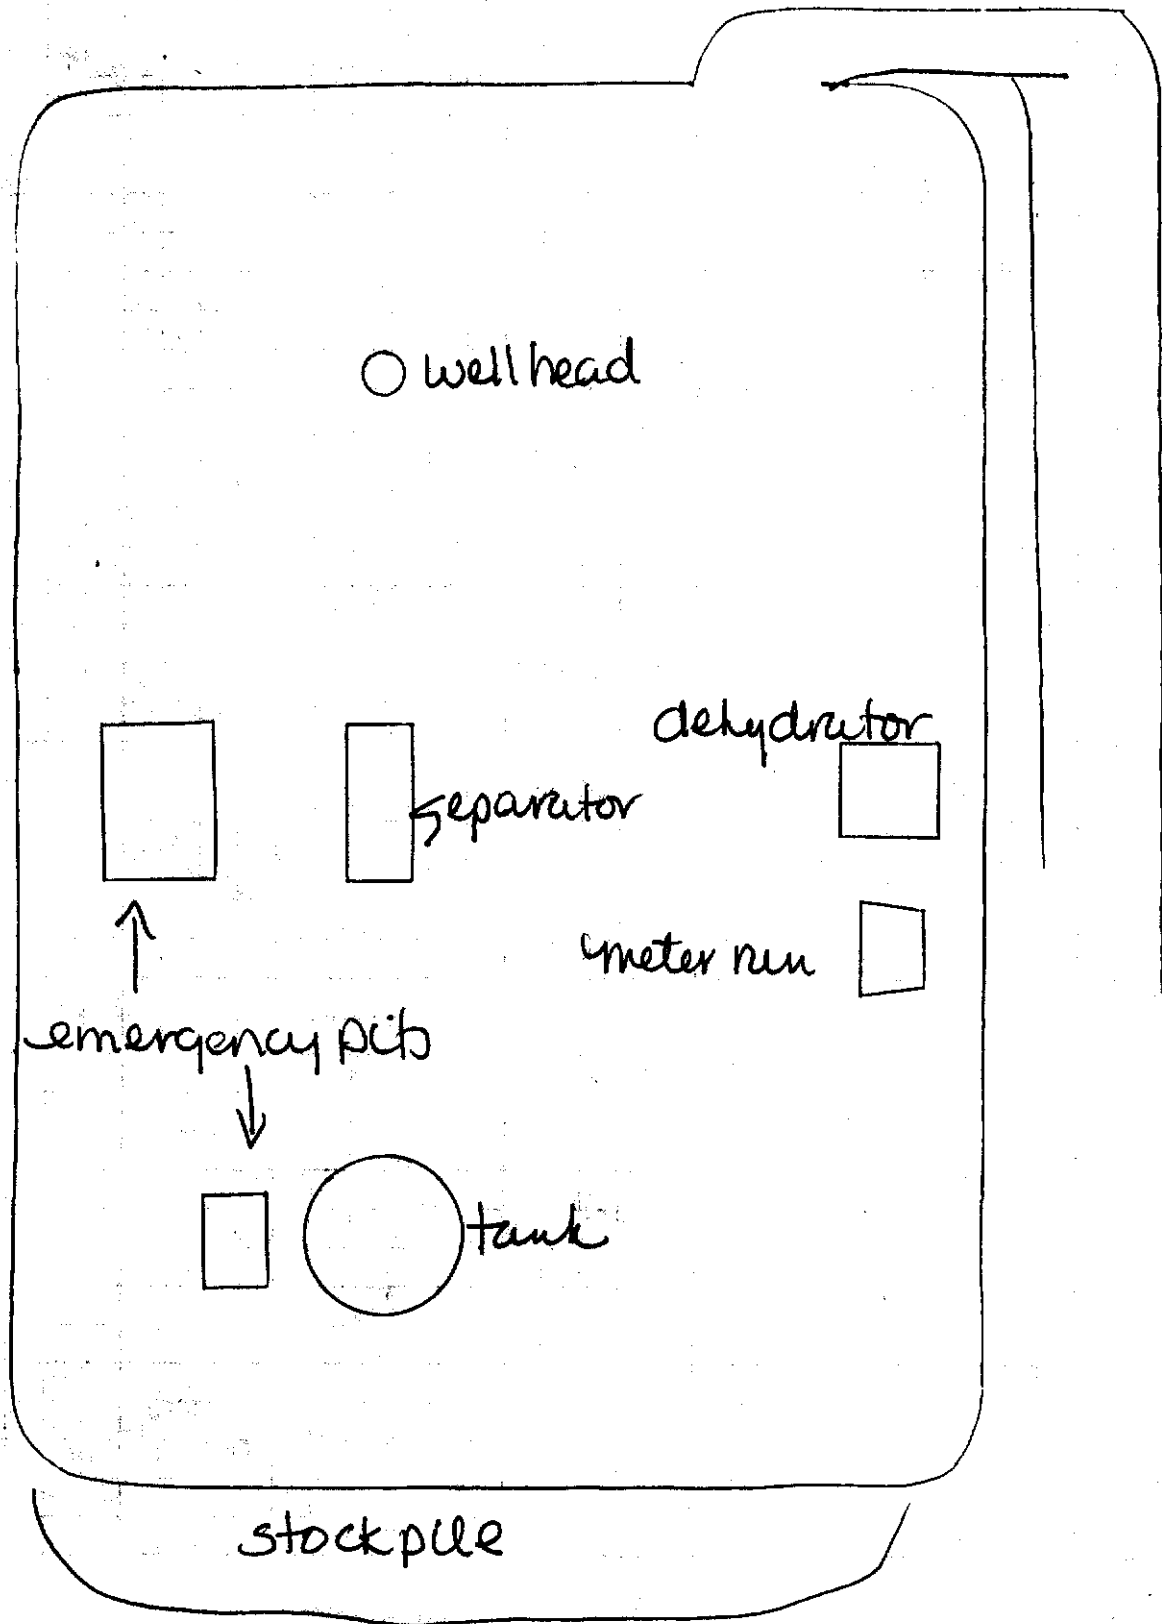 wellhead
dehydrator
separator
meter run
emergency pits
tank
stockpile